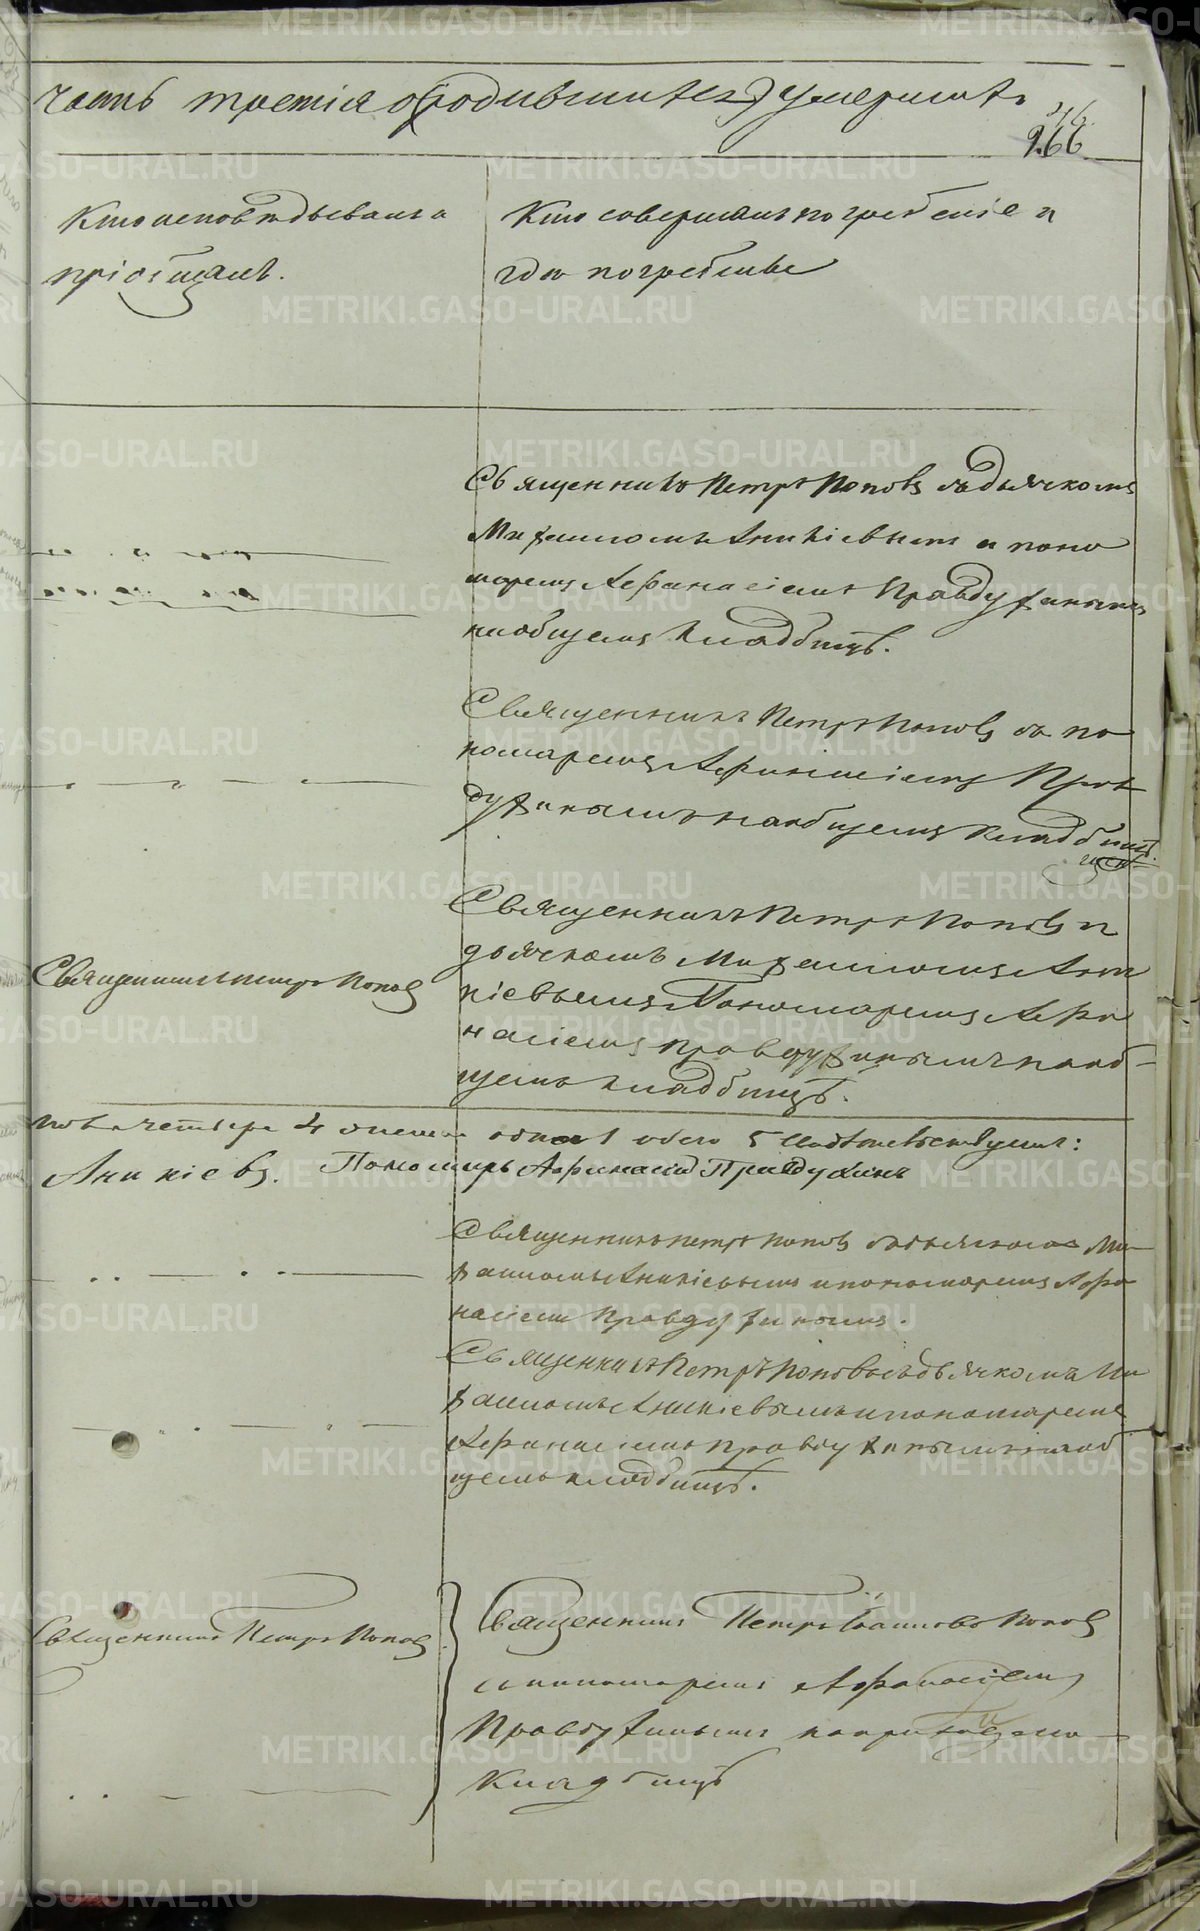 Часть третія о (родившихся) умершихъ
966
Кто исповѣдывалъ и
пріобщалъ.
Кто совершалъ погребеніе и
гдѣ погребены
Священникъ Петръ Поповъ съ дьячкомъ
Михаиломъ Аникіевымъ и поно
маремъ Афанасіемъ Правдухинымъ
на общемъ кладбищѣ.
Священникъ Петръ Поповъ съ по
номаремъ Афанасіемъ Прав
духинымъ на общемъ кладбищѣ.
Священникъ Петръ Поповъ
Священникъ Петръ Поповъ и
дьячкомъ Михаиломъ Ани
кіевымъ Пономаремъ Афа
насіемъ Правдухинымъ на об-
щемъ кладбищѣ.
пола четыре 4 женска одна 1 обоего 5 свидѣтельствуемъ:
Аникіевъ. Пономарь Афанасій Правдухинъ
Священникъ Петръ Поповъ съ дьячкомъ Ми-
хаиломъ Аникіевымъ и пономаремъ Афа
насіемъ Правдухинымъ.
Священникъ Петръ Поповъ съ дьячкомъ Ми
хаиломъ Аникіевымъ и пономаремъ
Афанасіемъ Правдухинымъ на об
щемъ кладбищѣ.
Священникъ Петръ Поповъ
Священникъ Петръ Поповъ
съ пономаремъ Афанасіемъ
Правдухинымъ на приходскомъ
кладбищѣ
METRIKI.GASO-URAL.RU